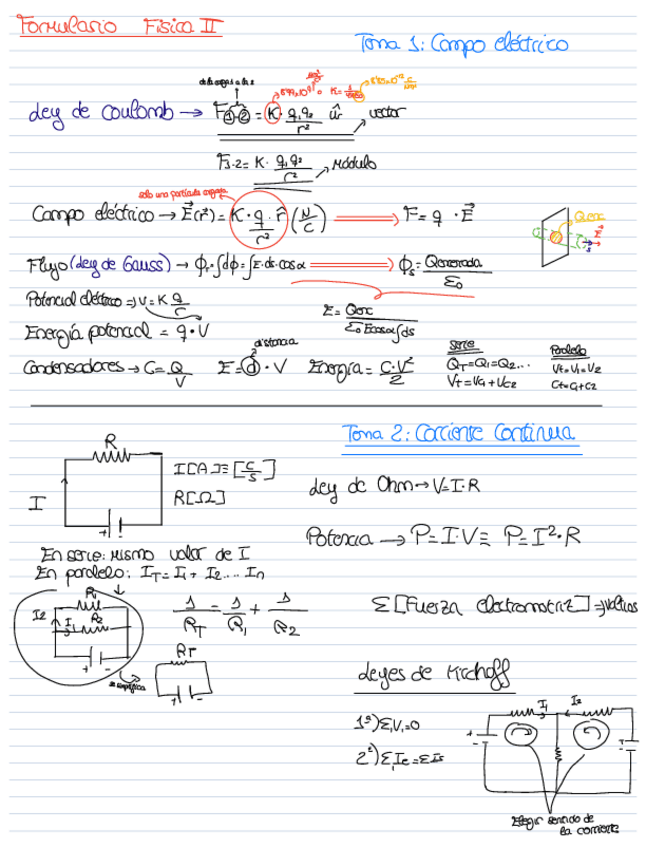 Formulario Física II
Tema 1: Campo eléctrico
Ley de Coulomb → F₁₂ = K · q₁q₂/r² ûr → vector
F₃₋₂ = K · q₁q₂/r² → Módulo
solo una partícula cargada
Campo eléctrico → E⃗(r²) = K·q·r̂/r² (N/C) ⟹ F = q · E⃗
Qenc
Flujo (Ley de Gauss) → Φ = ∫dΦ = ∫E·ds·cosα ⟹ Φs = Qencerrada/ε₀
Potencial eléctrico ⇒ V = K Q/r
E = Qenc/ε₀Ecosα∫ds
Energía potencial = q · V
distancia
Condensadores → C = Q/V E = d · V Energía = C·V²/2
Serie
QT = Q1 = Q2...
VT = VC1 + VC2
Paralelo
VT = V1 = V2
CT = C1 + C2
Tema 2: Corriente Continua
R
I
+ -
I[A] ≡ [C/S]
R[Ω]
Ley de Ohm → V = I · R
Potencia → P = I·V ≡ P = I² · R
En serie: mismo valor de I
En paralelo: IT = I1 + I2 ... In
R1
I2 I1 R2
+ -
1/RT = 1/R1 + 1/R2
RT
+ -
se simplifica
Σ [Fuerza electromotriz] ⇒ Voltios
Leyes de Kirchoff
1ª) ΣV = 0
2ª) ΣIe = ΣIs
I1 I2
Elegir sentido de
la corriente